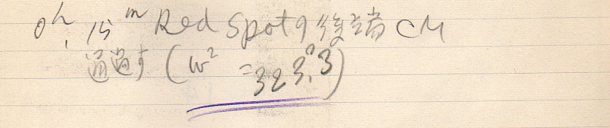 0h, 15m Red Spotノ後端CM
通過す (W² = 323.°3)